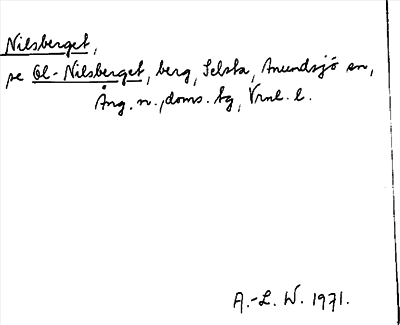 Nilsberget,
se Ol-Nilsberget, berg, Selsta, Anundsjö sn,
Ång. n. doms. tg, Vrnl. l.
A.-L. W. 1971.